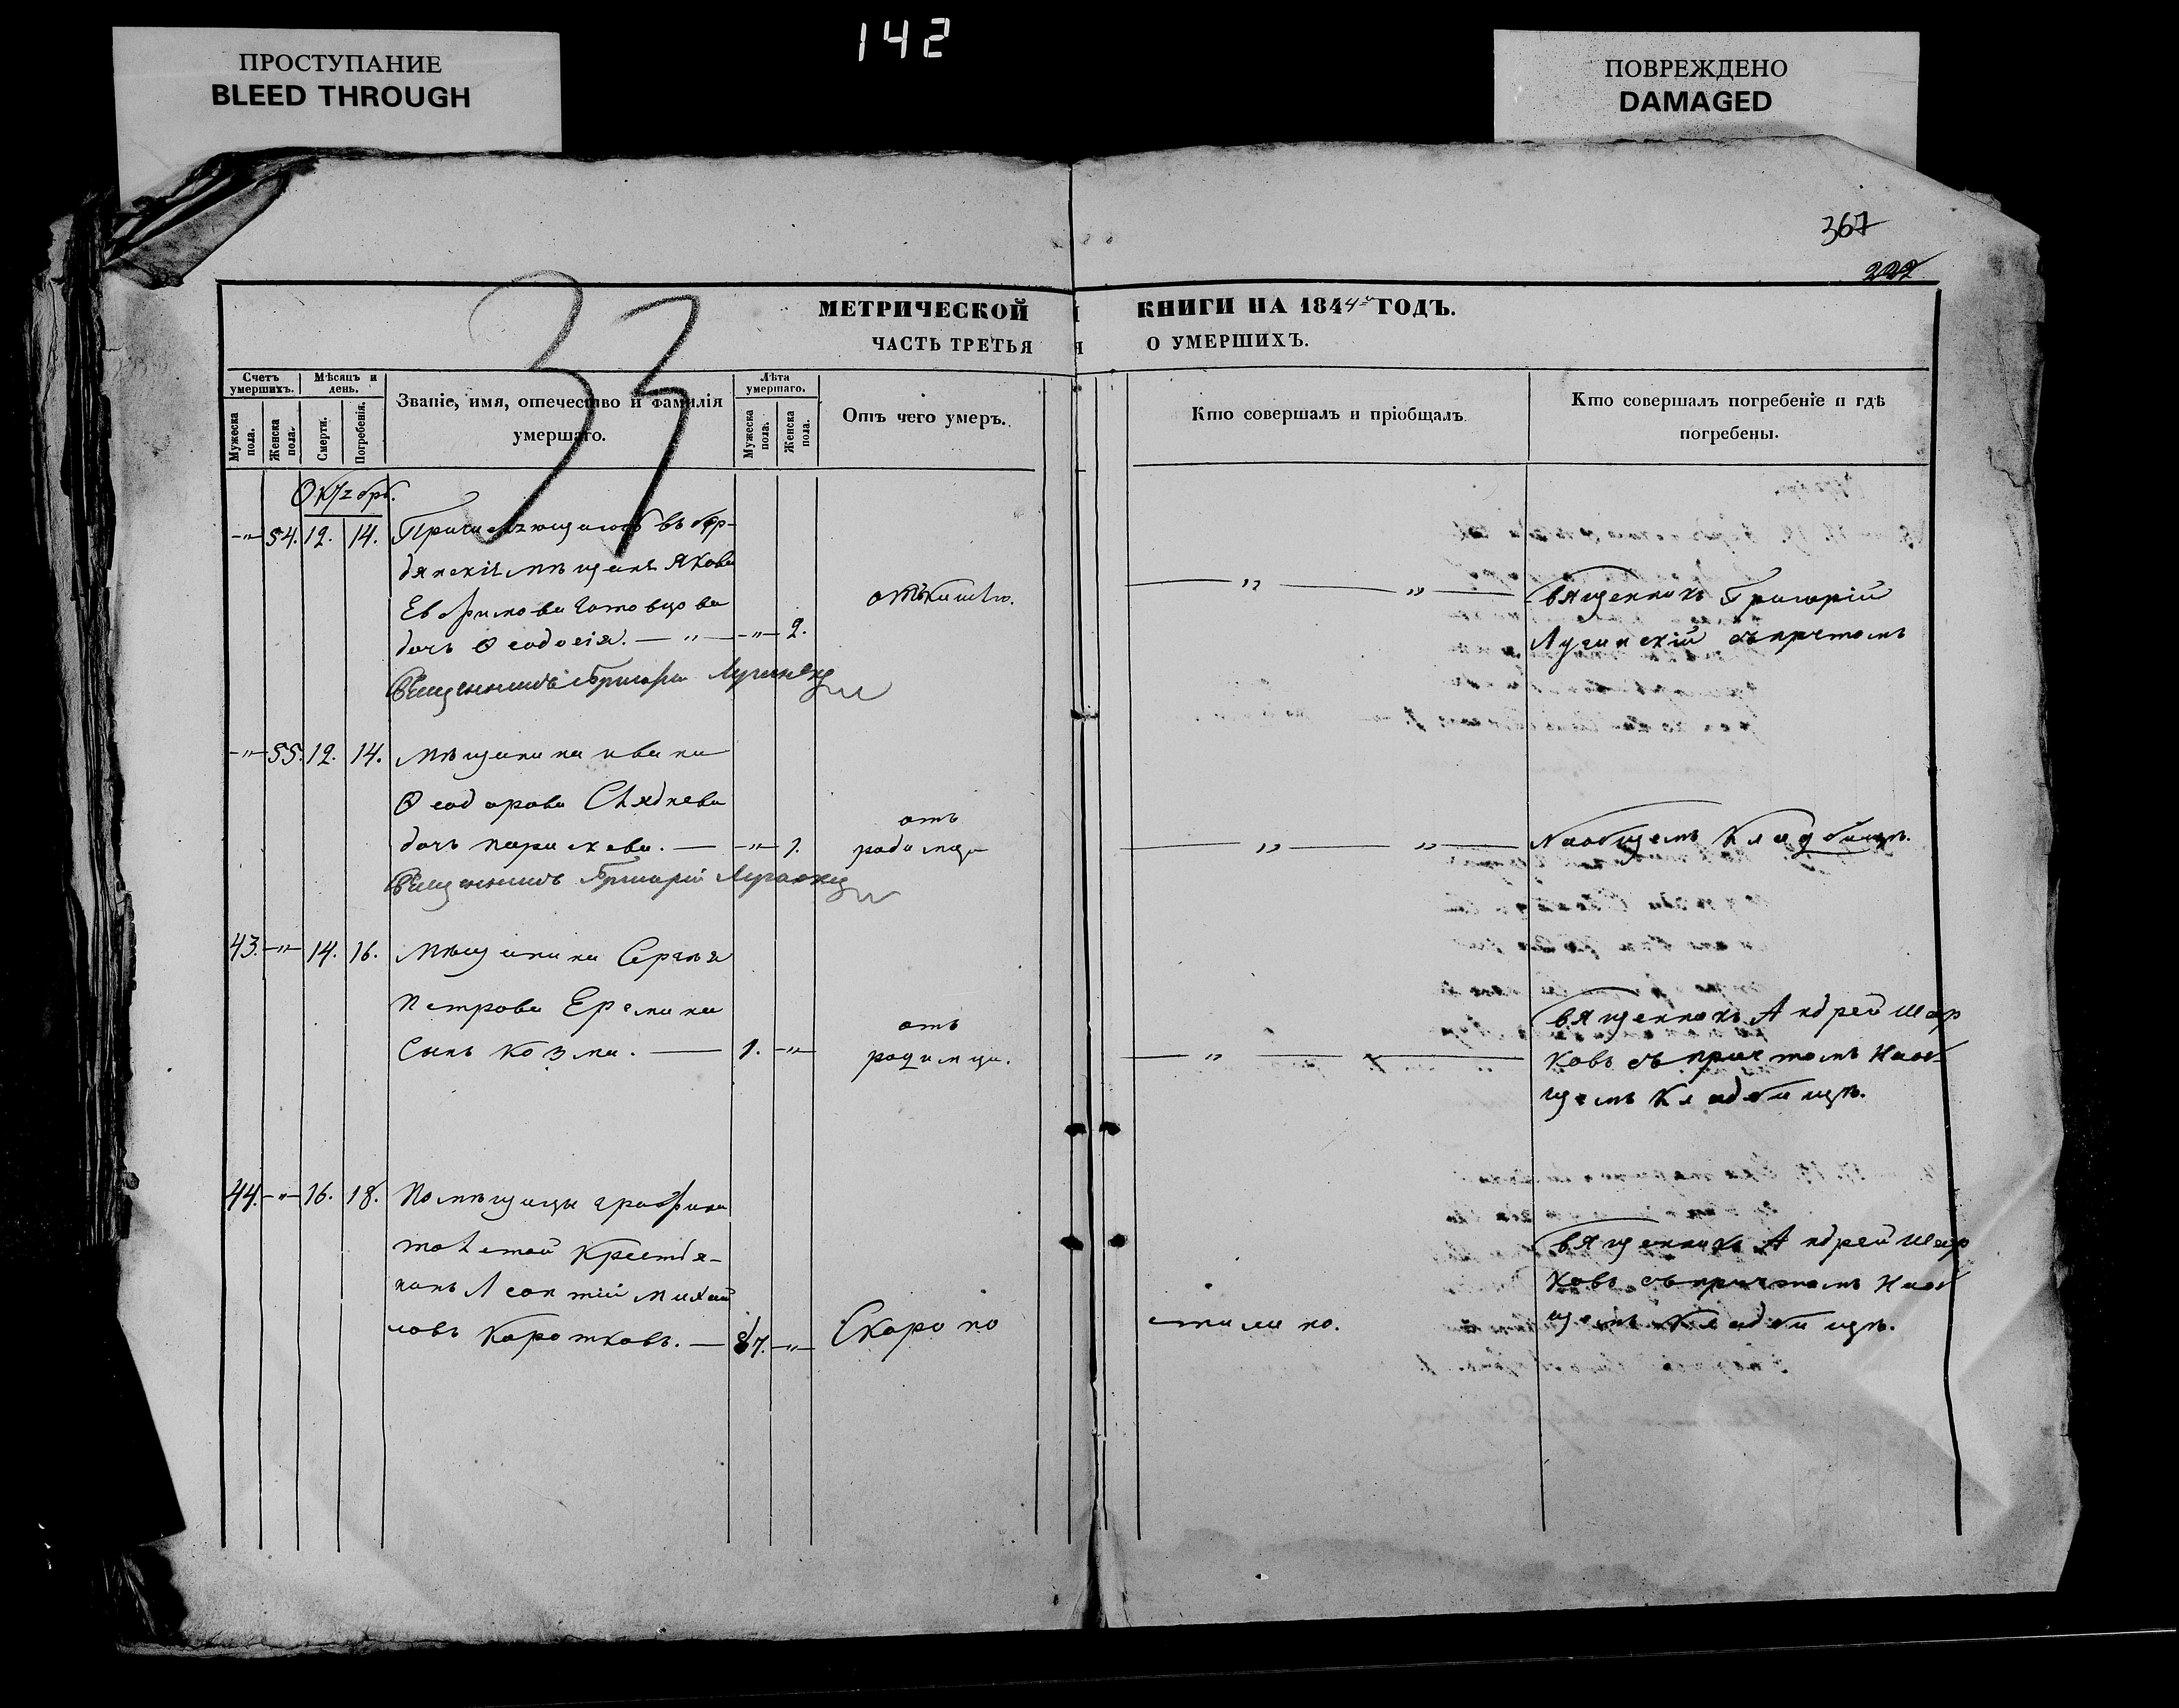 142
ПРОСТУПАНИЕ
BLEED THROUGH
ПОВРЕЖДЕНО
DAMAGED
367
222
33
МЕТРИЧЕСКОЙ КНИГИ НА 1844й ГОДЪ.
ЧАСТЬ ТРЕТЬЯ О УМЕРШИХЪ.
Счетъ умершихъ.
Мужеска пола.
Женска пола.
Мѣсяцъ и день.
Смерти.
Погребенія.
Званіе, имя, отечество и фамилія умершаго.
Лѣта умершаго.
Мужеска пола.
Женска пола.
Отъ чего умеръ.
Кто совершалъ и пріобщалъ
Кто совершалъ погребеніе и гдѣ погребены.
-"- 54. 12. 14.
въ бер-
дянскіе мѣщане Якова
дочь Ѳеодосія. — " — -"- 2.
Священникъ Григорій
Лучинскій съ причтомъ
Священникъ Григорій Лучинскій
-"- 55. 12. 14. мѣщанина ивана
Ѳеодорова Сляднева
дочь параскева. — -"- 1.
отъ
родимца
на общемъ кладбищѣ.
Священникъ Григорій Лучинскій
43. -"- 14. 16. мѣщанина Сергѣя
петрова Еремина
сынъ козма. — 1. -"-
отъ
родимца.
Священникъ Андрей Шар
ковъ съ причтомъ на об-
щемъ кладбищѣ.
44. -"- 16. 18. помѣщицы графини
толстой крестья-
нинъ Леонтій михай
ловъ коротковъ. — 87. -"-
Скоропо
стижно.
Священникъ Андрей Шар
ковъ съ причтомъ на об
щемъ кладбищѣ.